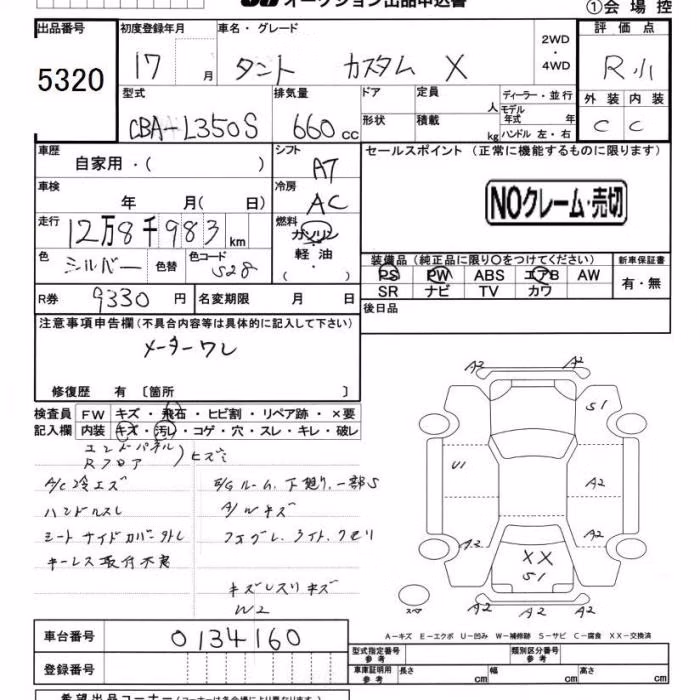 オークション出品申込書
①会場控
出品番号
5320
初度登録年月
17 月
車名・グレード
タント カスタム X
2WD
・
4WD
評価点
R小
型式
CBA-L350S
排気量
660 cc
ドア
形状
定員
人
積載
kg
ディーラー・並行
モデル
年式 年
ハンドル 左・右
外装 内装
C C
車歴
自家用・( )
シフト
A7
セールスポイント (正常に機能するものに限ります)
NOクレーム・売切
車検
年 月( 日)
冷房
AC
走行
12万8千983 km
燃料
ガソリン
軽油
( ・ )
色
シルバー
色替
色コード
S28
装備品 (純正品に限り○をつけてください)
PS PW ABS エアB AW
SR ナビ TV カワ
新車保証書
有・無
R券
9330 円
名変期限 月 日
後日品
注意事項申告欄 (不具合内容等は具体的に記入して下さい)
メーターワレ
修復歴 有 〔箇所 〕
検査員
記入欄
FW キズ・飛石・ヒビ割・リペア跡・×要
内装 キズ・汚レ・コゲ・穴・スレ・キレ・破レ
エンドパネル
Rフロア
A/C冷エズ
E/Gルーム、下廻リ、一部S
ハンドルスレ
A/Wキズ
シートサイドカバー外レ
キーレス取付不良
W2
A2
A2
S1
U1
A2
A2
A2
XX
S1
A2
A2
A2
スペア
A-キズ E-エクボ U-凹み W-補修跡 S-サビ C-腐食 XX-交換済
車台番号
0134160
型式指定番号
参考
類別区分番号
参考
登録番号
車庫証明用
参考
長さ cm 幅 cm 高さ cm
希望出品コーナー (コーナーは各会場により異なります)